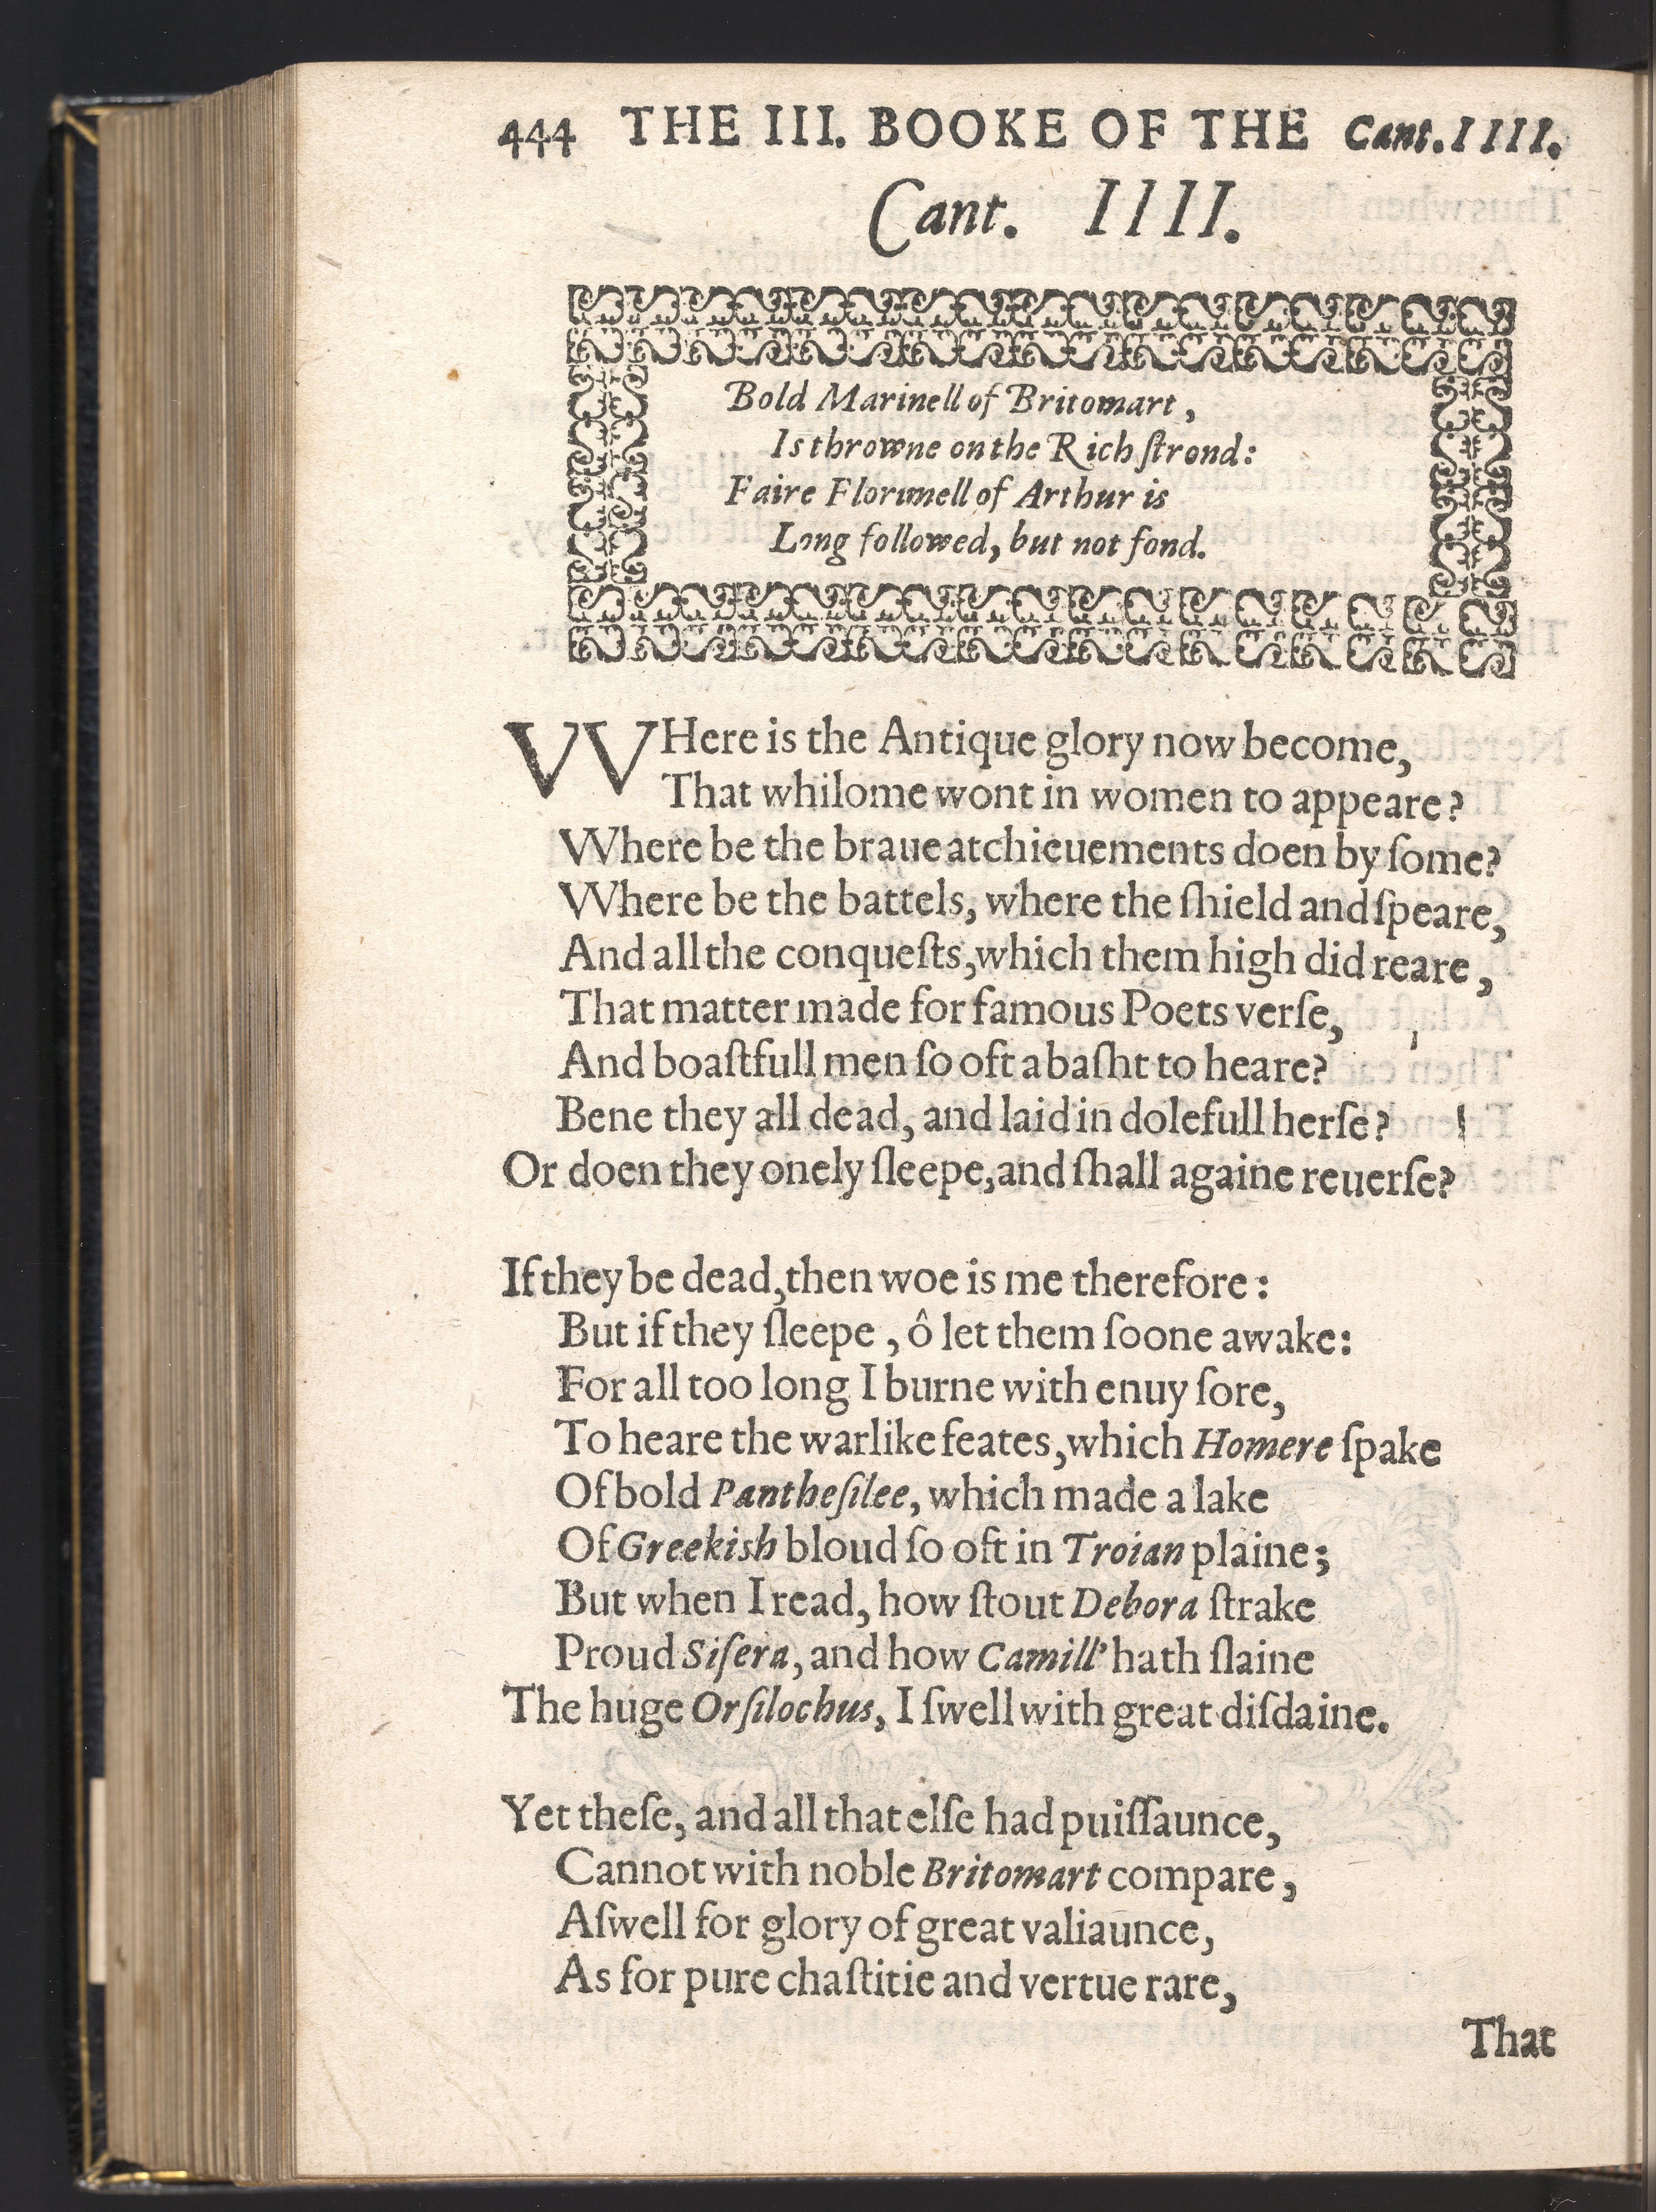 444 THE III. BOOKE OF THE Cant. IIII.
Cant. IIII.
Bold Marinell of Britomart,
Is throwne on the Rich ſtrond:
Faire Florimell of Arthur is
Long followed, but not fond.
WHere is the Antique glory now become,
That whilome wont in women to appeare?
Where be the braue atchieuements doen by ſome?
Where be the battels, where the ſhield and ſpeare,
And all the conqueſts, which them high did reare,
That matter made for famous Poets verſe,
And boaſtfull men ſo oft abaſht to heare?
Bene they all dead, and laid in dolefull herſe?
Or doen they onely ſleepe, and ſhall againe reuerſe?
If they be dead, then woe is me therefore:
But if they ſleepe, ô let them ſoone awake:
For all too long I burne with enuy ſore,
To heare the warlike feates, which Homere ſpake
Of bold Pantheſilee, which made a lake
Of Greekish bloud ſo oft in Troian plaine;
But when I read, how ſtout Debora ſtrake
Proud Siſera, and how Camill' hath ſlaine
The huge Orſilochus, I ſwell with great diſdaine.
Yet theſe, and all that elſe had puiſſaunce,
Cannot with noble Britomart compare,
Aſwell for glory of great valiaunce,
As for pure chaſtitie and vertue rare,
That